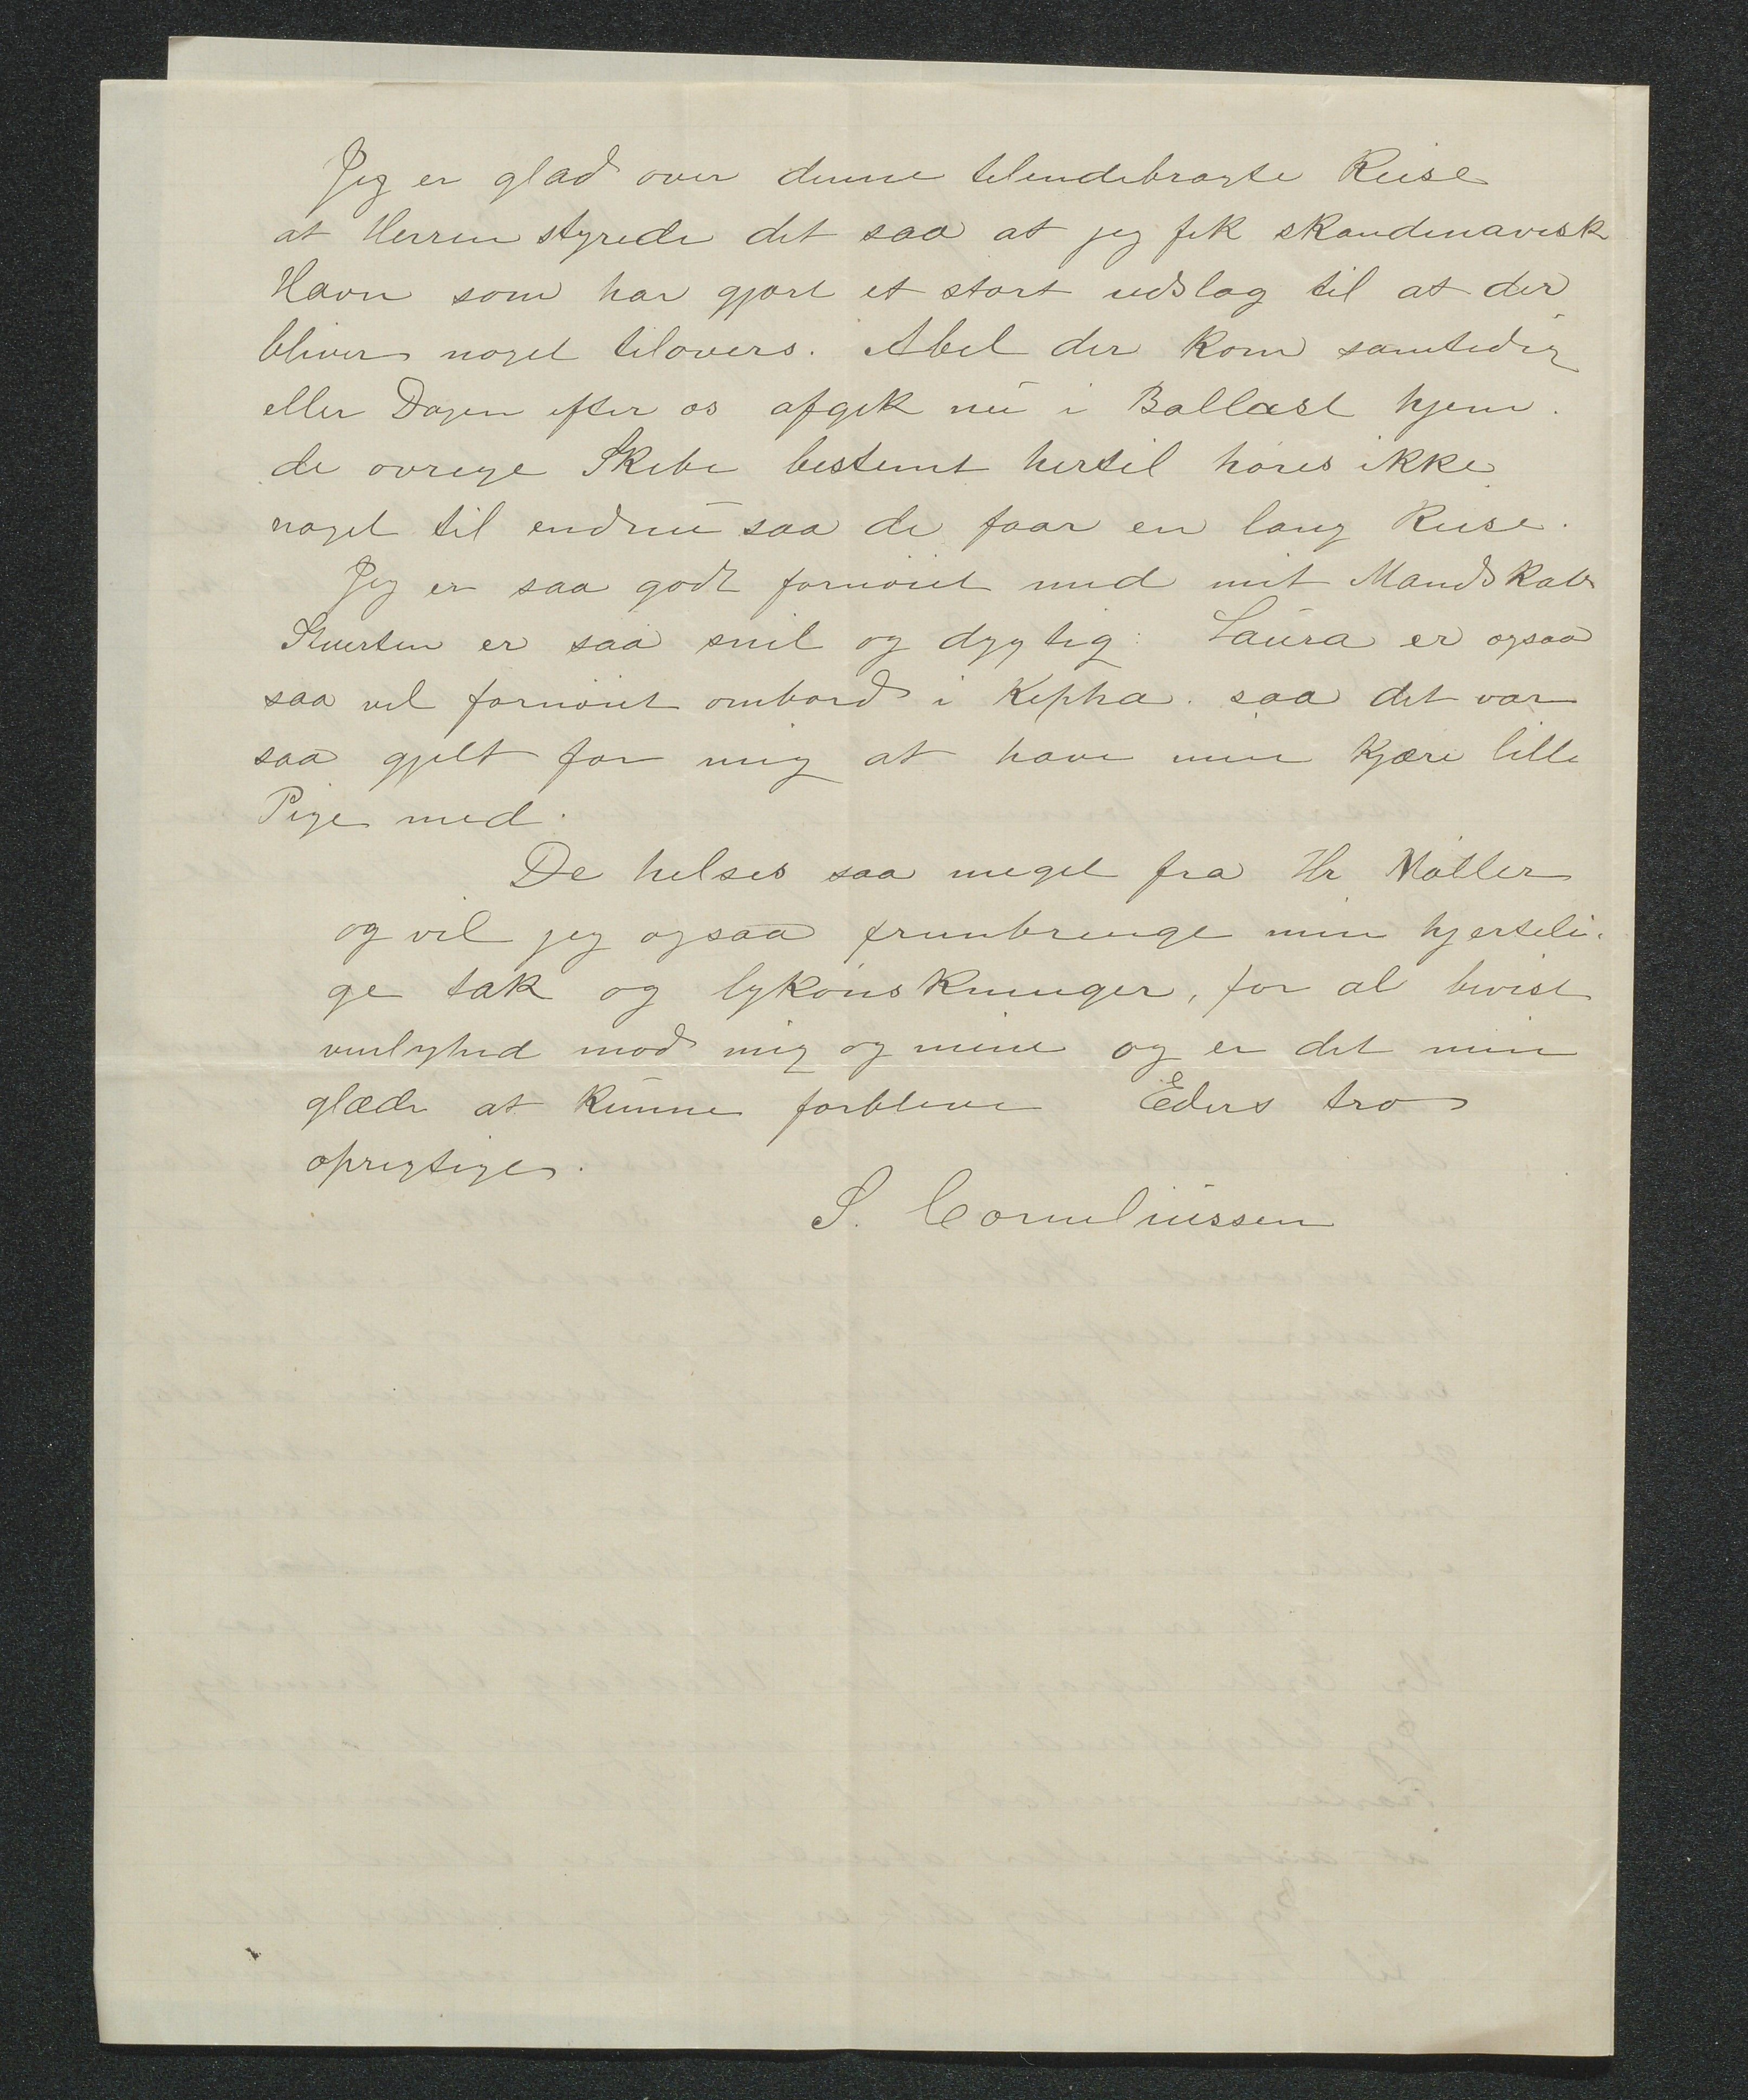 Jeg er glad over denne tilendebragte Reise
at Herren styrede det saa at jeg fik skandinavisk
Havn som har gjort et stort udslag til at der
bliver noget tilovers. Abel der kom samtidig
eller Dagen efter os afgik nu i Ballast hjem.
de øvrige Skibe bestemt hertil høres ikke
noget til endnu saa de faar en lang Reise.
Jeg er saa godt fornøiet med mit Mandskab
Stuerten er saa snil og dygtig: Laura er ogsaa
saa vel fornøiet ombord i Kepha. saa det var
saa gjilt for mig at have min Kjære lille
Pige med.
De helses saa meget fra Hr Møller
og vil jeg ogsaa frembringe min hjerteli-
ge tak og lykønskninger, for al bevist
venlighed mod mig og mine og er det min
glæde at kunne forblive Eders tro
oprigtige.
S. Corneliussen